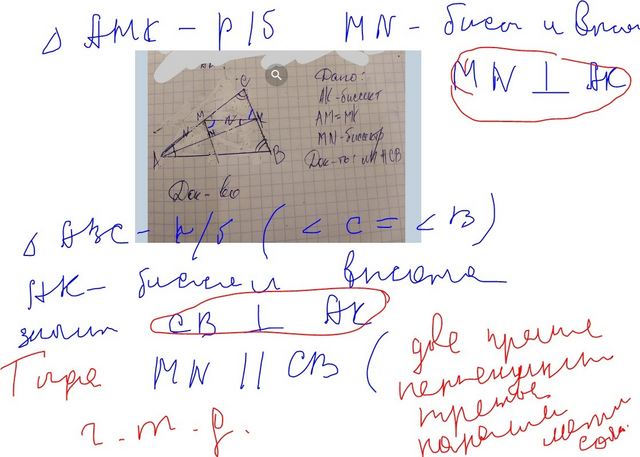 Δ AMK - р/б MN - бисс и высо
MN ⊥ AK
Дано:
AK - биссект
AM = MK
MN - биссектр
Док-ть: MN || CB
C
M
K
N
A
B
Док-во
Δ ABC - р/б ( < C = < B )
AK - биссе и высота
значит CB ⊥ AK
Тогда MN || CB (
две прямые
перпендикулярн
третьей
паралле
между
собой.
ч.т.д.